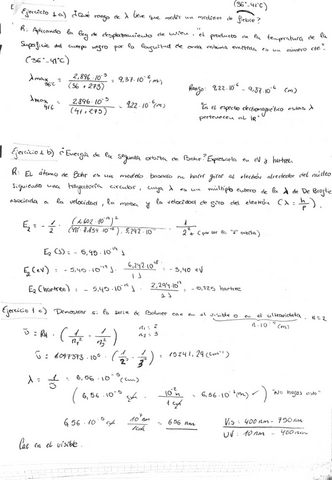 (36º-41ºC)
Ejercicio 1 a) ¿Qué rango de λ tiene que medir un medidor de fiebre?
R: Aplicando la ley de desplazamiento de wien, "el producto de la temperatura de la
superficie del cuerpo negro por la longitud de onda máxima emitida es un número cte".
(36º-41ºC)
λmax 36ºC = 2,896·10⁻³ / (36 + 273) = 9,37·10⁻⁶ (m)
Rango: 9,22·10⁻⁶ - 9,37·10⁻⁶ (m)
λmax 41ºC = 2,896·10⁻³ / (41 + 273) = 9,22·10⁻⁶ (m)
En el espectro electromagnético estas λ
pertenecen al IR
Ejercicio 1 b) ¿Energía de la segunda órbita de Bohr? Expresarla en eV y hartree.
R: El átomo de Bohr es un modelo basado en hacer girar al electrón alrededor del núcleo
siguiendo una trayectoria circular, cuya λ es un múltiplo entero de la λ de De Broglie
asociada a la velocidad, la masa y la velocidad de giro del electrón (λ = h/p).
E₂ (J) = - 5,45·10⁻¹⁹ J
E₂ (eV) = - 5,45·10⁻¹⁹ J · 6,242·10¹⁸ / 1 J = - 3,40 eV
E₂ (hartree) = - 5,45·10⁻¹⁹ J · = - 0,125 hartree
Ejercicio 1 c) Demostrar si la serie de Balmer cae en el visible o en el ultravioleta. n=2
ῡ = RH · (1/n₁² - 1/n₂²) n₁ = 2 n₂ = 3
ῡ = · (1/2² - 1/3²) = 15241,24 (cm⁻¹)
λ = 1/ῡ = 6,56·10⁻⁵ (cm)
(6,56·10⁻⁵ cm · 10⁻² m / 1 cm = 6,56·10⁻⁷ (m) ✓)
6,56·10⁻⁵ cm · 10⁷ nm / 1 cm = 656 nm
VIS: 400 nm - 750 nm
UV: 10 nm - 400 nm
Cae en el visible.